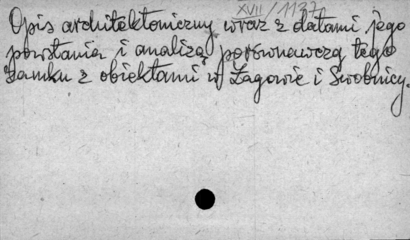 XVII/1137
Opis architektoniczny wraz z datami jego
powstania i analizą porównawczą tego
zamku z obiektami w Łagowie i Swobnicy.